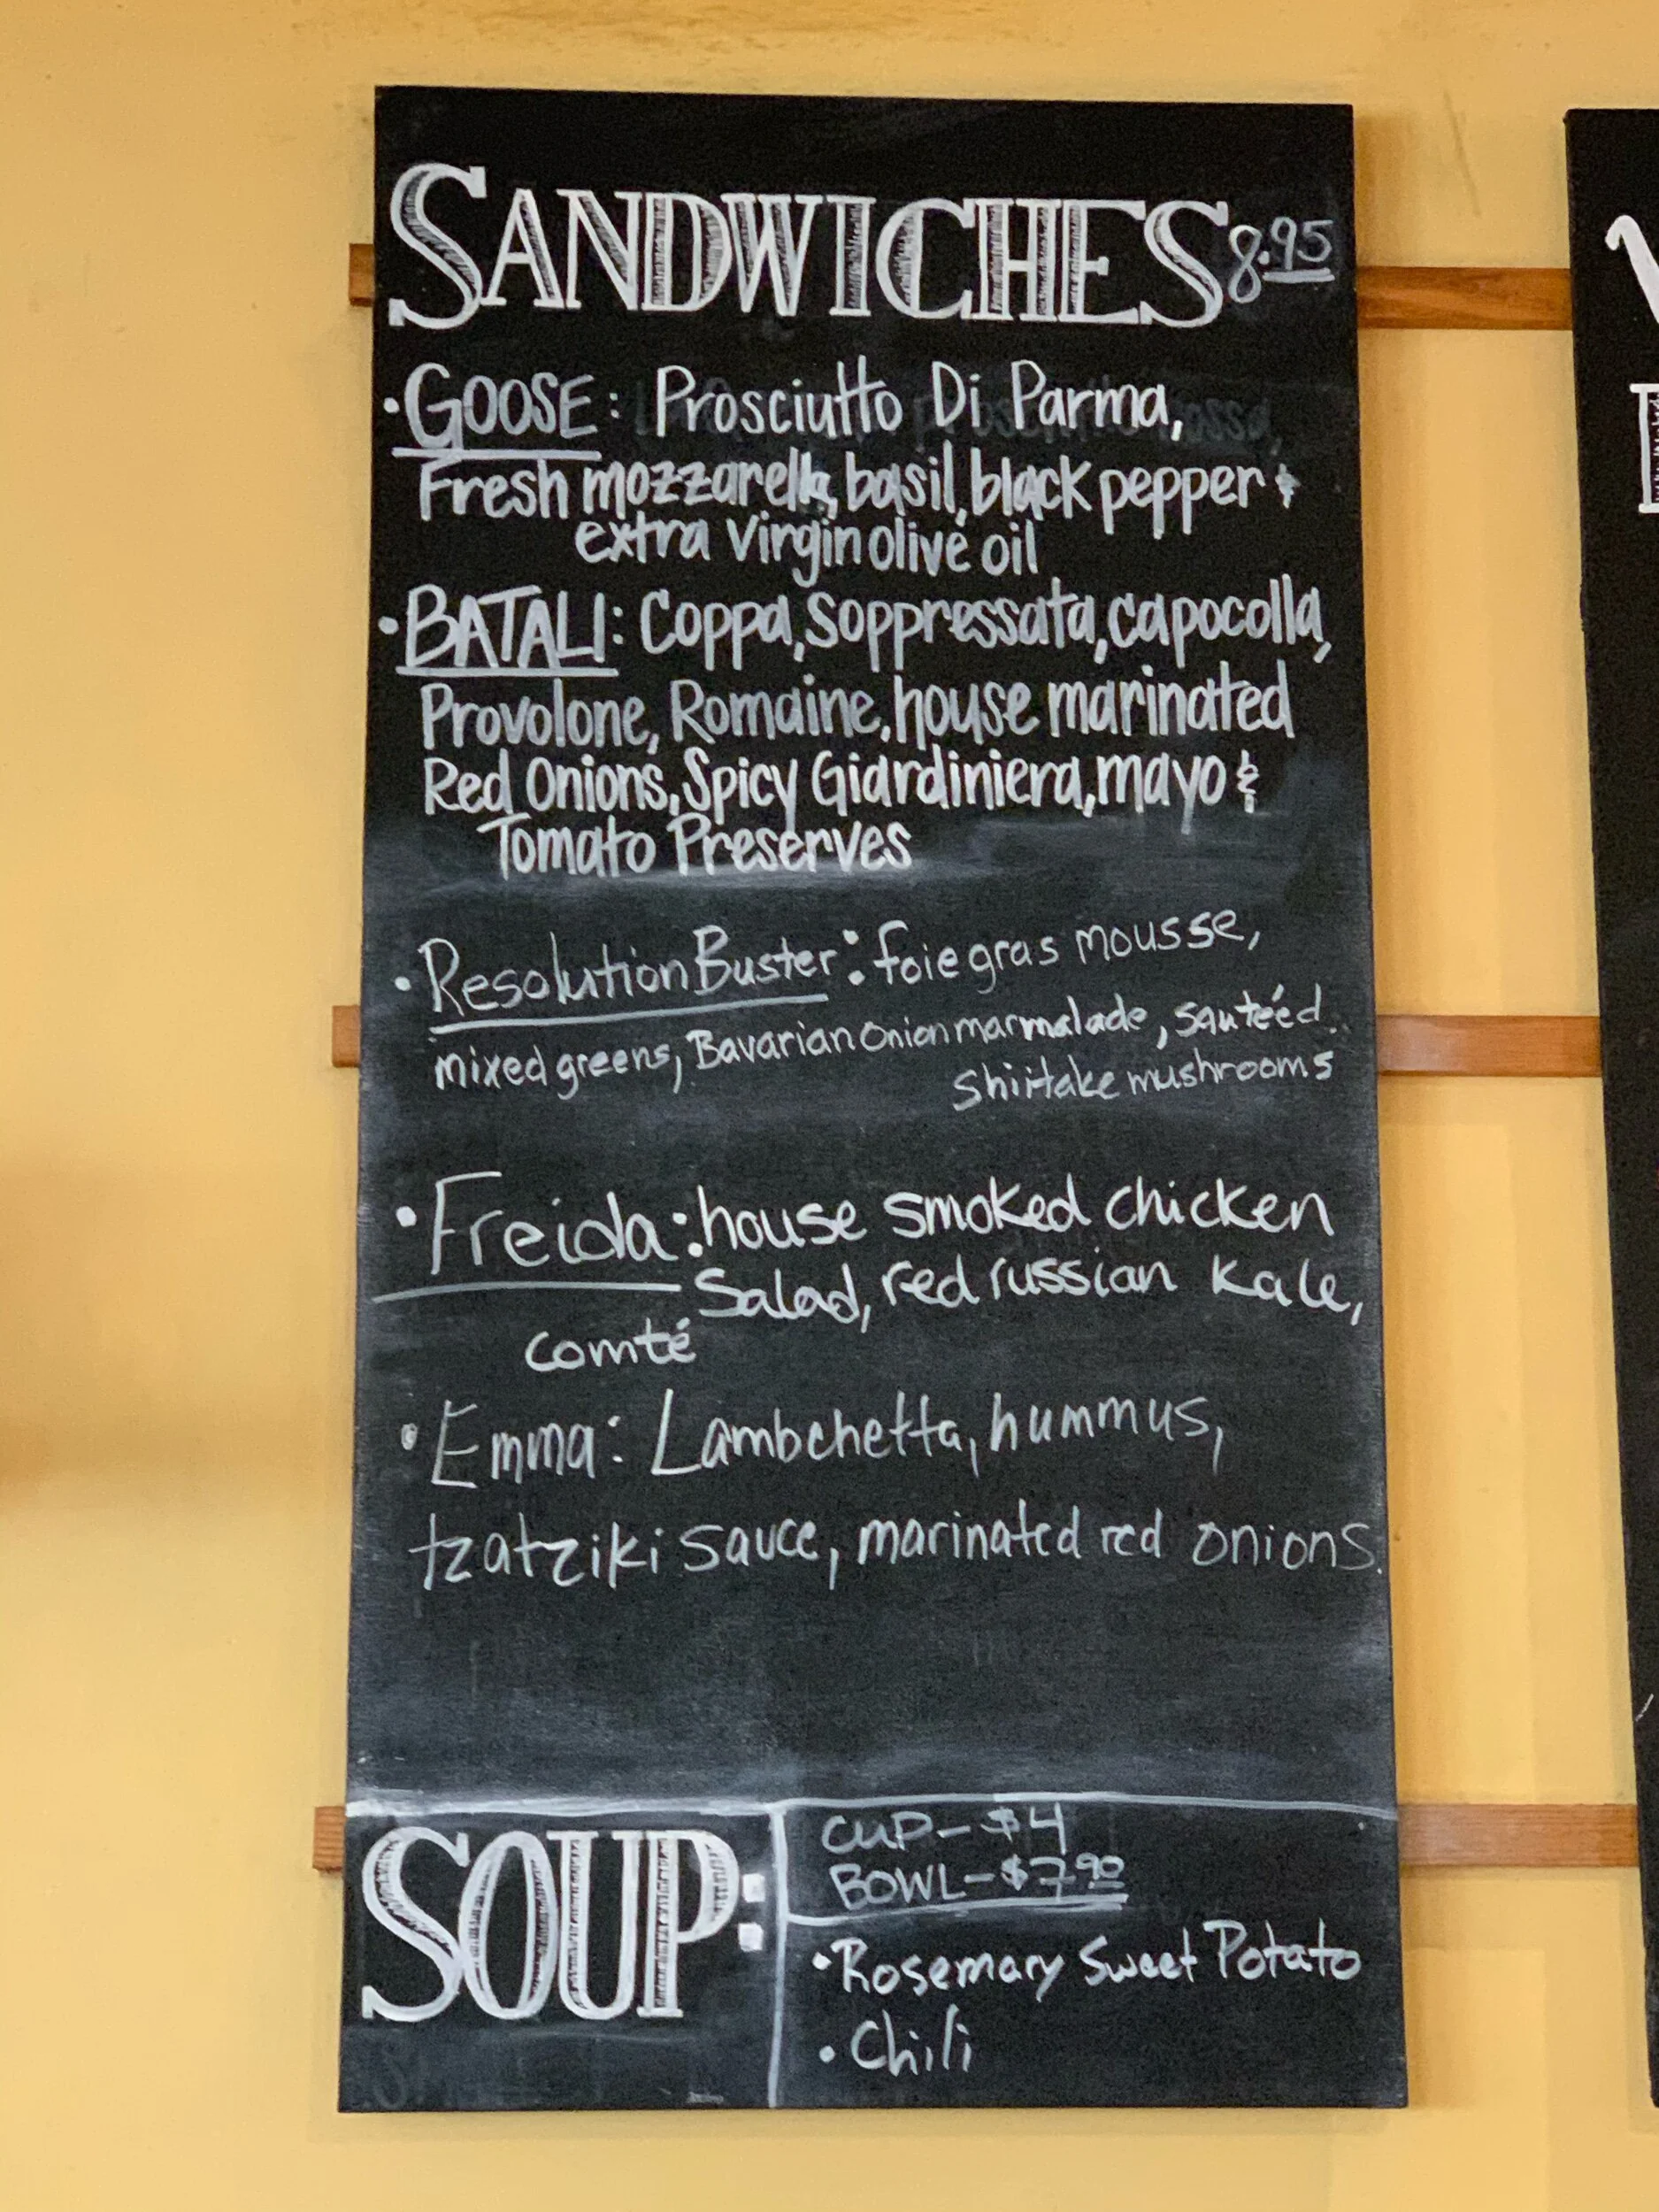 SANDWICHES 8.95
• GOOSE: Prosciutto Di Parma,
Fresh mozzarella, basil, black pepper &
extra Virgin olive oil
• BATALI: Coppa, Soppressata, capocolla,
Provolone, Romaine, house marinated
Red Onions, Spicy Giardiniera, mayo &
Tomato Preserves
• Resolution Buster: foie gras mousse,
mixed greens, Bavarian Onion marmalade, sautéed
Shiitake mushrooms
• Freida: house smoked chicken
Salad, red russian Kale,
comté
• Emma: Lambchetta, hummus,
tzatziki sauce, marinated red onions.
SOUP:
CUP - $4
BOWL - $7.90
• Rosemary Sweet Potato
• Chili